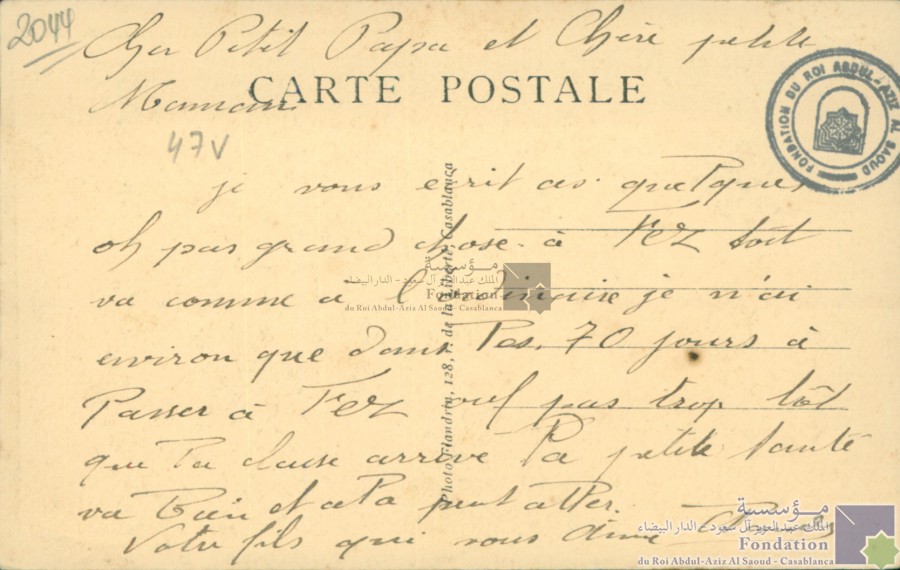 2044
Cher Petit Papa et Chère petite
CARTE POSTALE
Maman
FONDATION DU ROI ABDUL-AZIZ AL SAOUD
47V
je vous ecrit ces quelques
oh pas grand chose à Fez tout
va comme a l'ordinaire je n'ai
environ que dans les 70 jours à
Passer à Fez ouf pas trop tôt
que la classe arrive la petite santé
va bien et cela peut aller.
Votre fils qui vous aime
Photo Flandrin, 128, r. de la Liberté, Casablanca
مؤسسة
الملك عبد العزيز آل سعود - الدار البيضاء
Fondation
du Roi Abdul-Aziz Al Saoud - Casablanca
مؤسسة
الملك عبد العزيز آل سعود - الدار البيضاء
Fondation
du Roi Abdul-Aziz Al Saoud - Casablanca